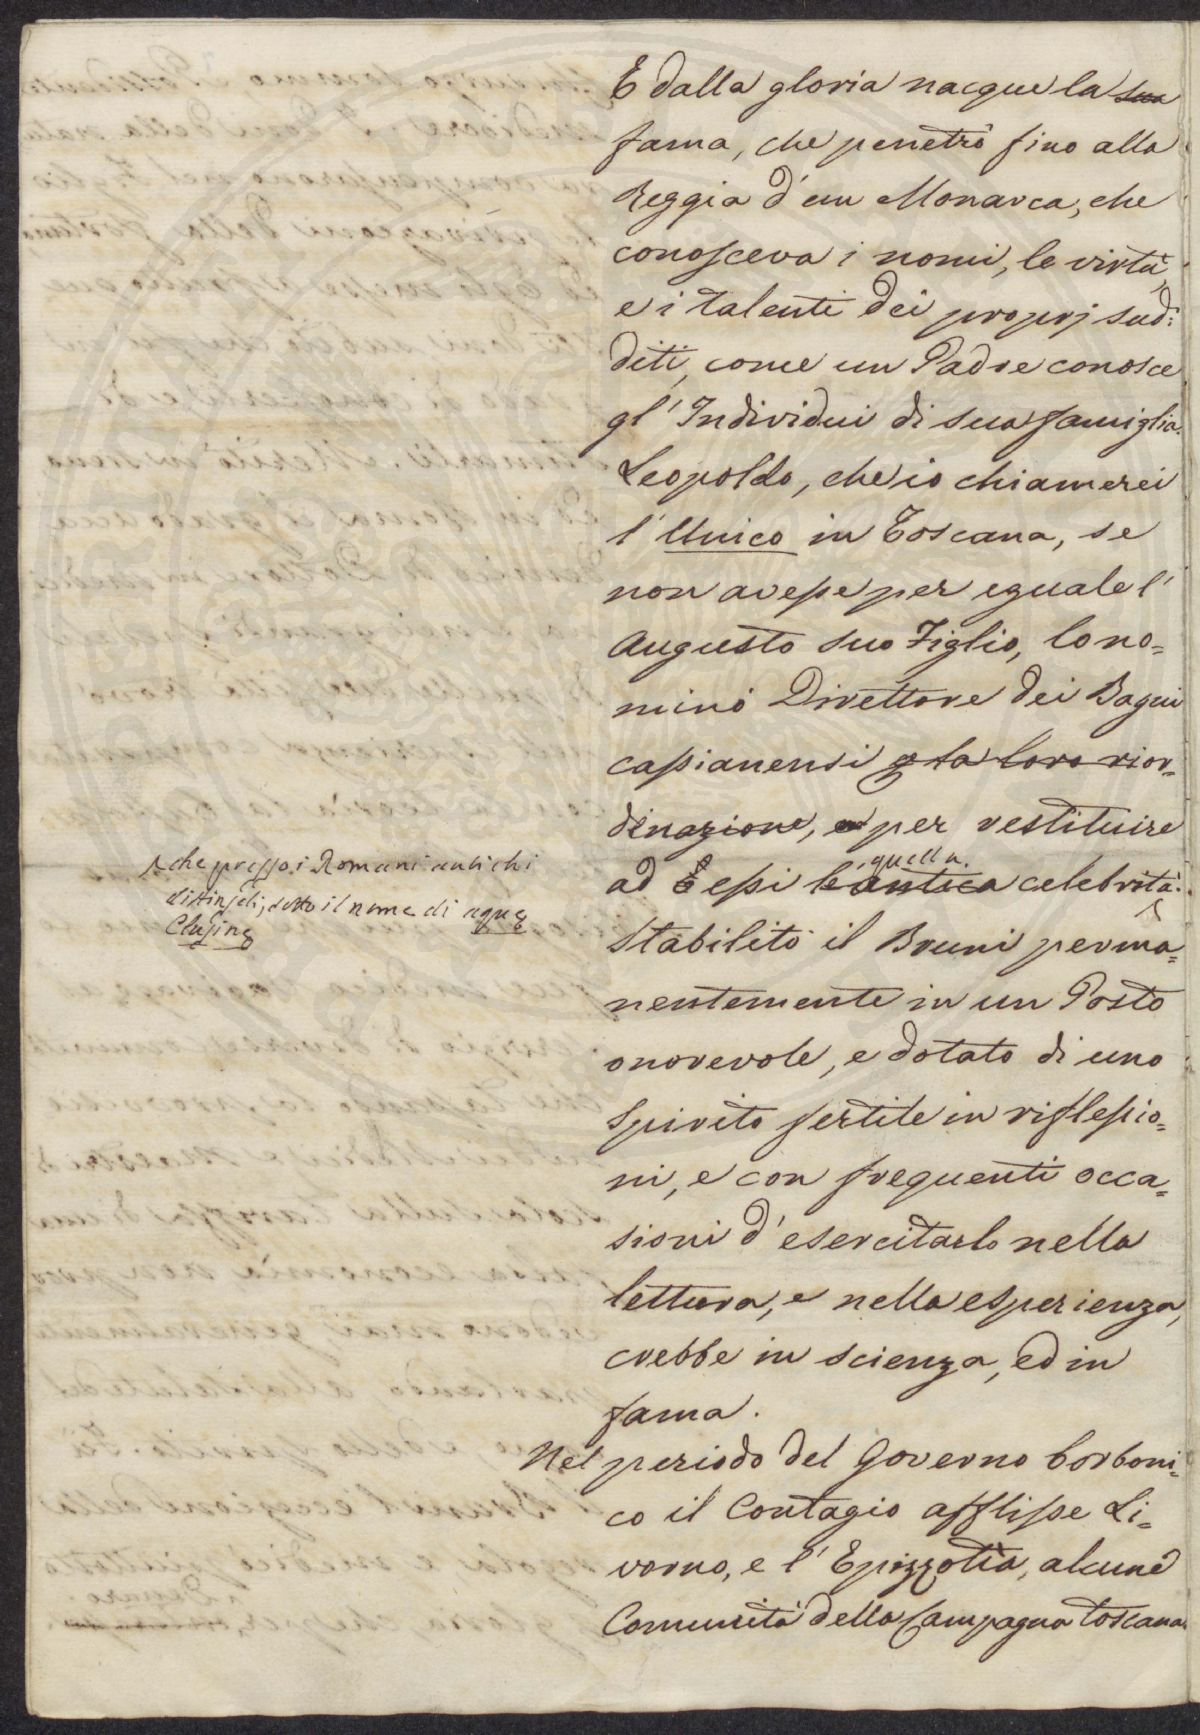 E dalla gloria nacque la sua
fama, che penetrò fino alla
Reggia d'un Monarca, che
conosceva i nomi, le virtù,
e i talenti dei proprj sud:
diti, come un Padre conosce
gl'Individui di sua famiglia.
Leopoldo, che io chiamerei
l'Unico in Toscana, se
non avesse per eguale l'
Augusto suo Figlio, lo no=
minò Direttore dei Bagni
cassianensi la loro rior=
dinazione, per restituire
quella
ad essi l'antica celebrità.
che presso i Romani antichi
distinseli, sotto il nome di aque
Clusine
Stabilito il Bruni perma=
nentemente in un Posto
onorevole, e dotato di uno
Spirito fertile in riflessio=
ni, e con frequenti occa=
sioni d'esercitarlo nella
lettura, e nella esperienza,
crebbe in scienza, ed in
fama.
Nel periodo del Governo borboni=
co il Contagio afflisse Li=
vorno, e l'Epizzotìa, alcune
Comunità della Campagna toscana.